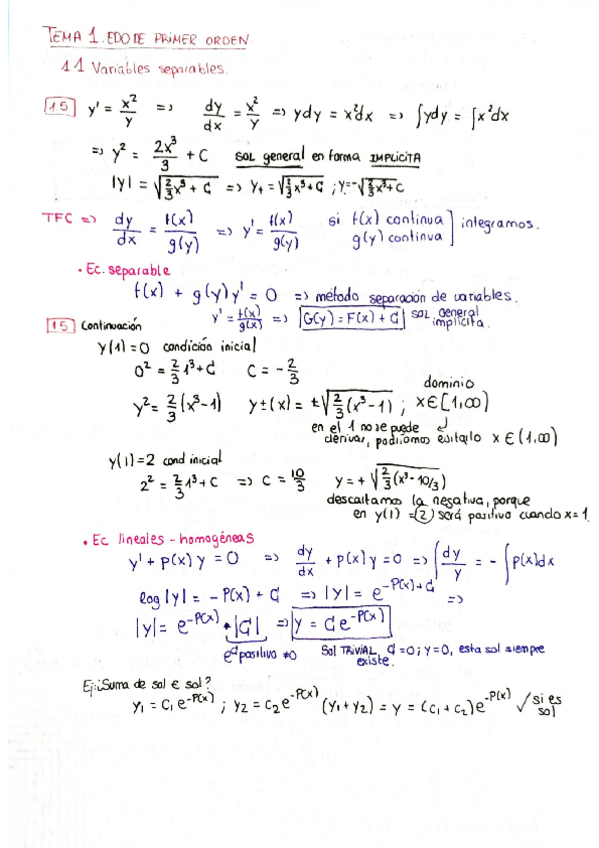 TEMA 1. EDO DE PRIMER ORDEN
1.1 Variables separables.
1.5 y' = x²/y => dy/dx = x²/y => ydy = x²dx => ∫ydy = ∫x²dx
=> y² = 2x³/3 + C SOL general en forma IMPLÍCITA
|y| = √(2/3x³ + C) => y+ = √(2/3x³ + C) ; y = -√(2/3x³ + C)
TFC => dy/dx = f(x)/g(y) => y' = f(x)/g(y) si f(x) continua
g(y) continua ] integramos.
• Ec. separable
f(x) + g(y)y' = 0 => método separación de variables.
y' = f(x)/g(x) => G(y) = F(x) + C sol general
implícita.
1.5 Continuación
y(1)=0 condición inicial
0² = 2/3 1³ + C C = -2/3
dominio
y² = 2/3(x³-1) y±(x) = ±√(2/3(x³-1)) ; x∈[1,∞)
en el 1 no se puede
derivar, podríamos evitarlo x∈(1,∞)
y(1)=2 cond inicial
2² = 2/3 1³ + C => C = 10/3 y = +√(2/3(x³-10/3))
descartamos la negativa, porque
en y(1) = 2 será positivo cuando x=1.
• Ec lineales - homogéneas
y' + p(x)y = 0 => dy/dx + p(x)y = 0 => ∫dy/y = -∫p(x)dx
log|y| = -P(x) + C => |y| = e^(-P(x)+C) =>
|y| = e^(-P(x)) • |C| => y = Ce^(-P(x))
e^C positivo ≠0 Sol TRIVIAL, C=0; y=0, esta sol siempre
existe.
Ej: ¿Suma de sol ∈ sol?
y₁ = C₁e^(-P(x)) ; y₂ = C₂e^(-P(x)) (y₁+y₂) = y = (C₁+C₂)e^(-P(x)) ✓ si es
sol